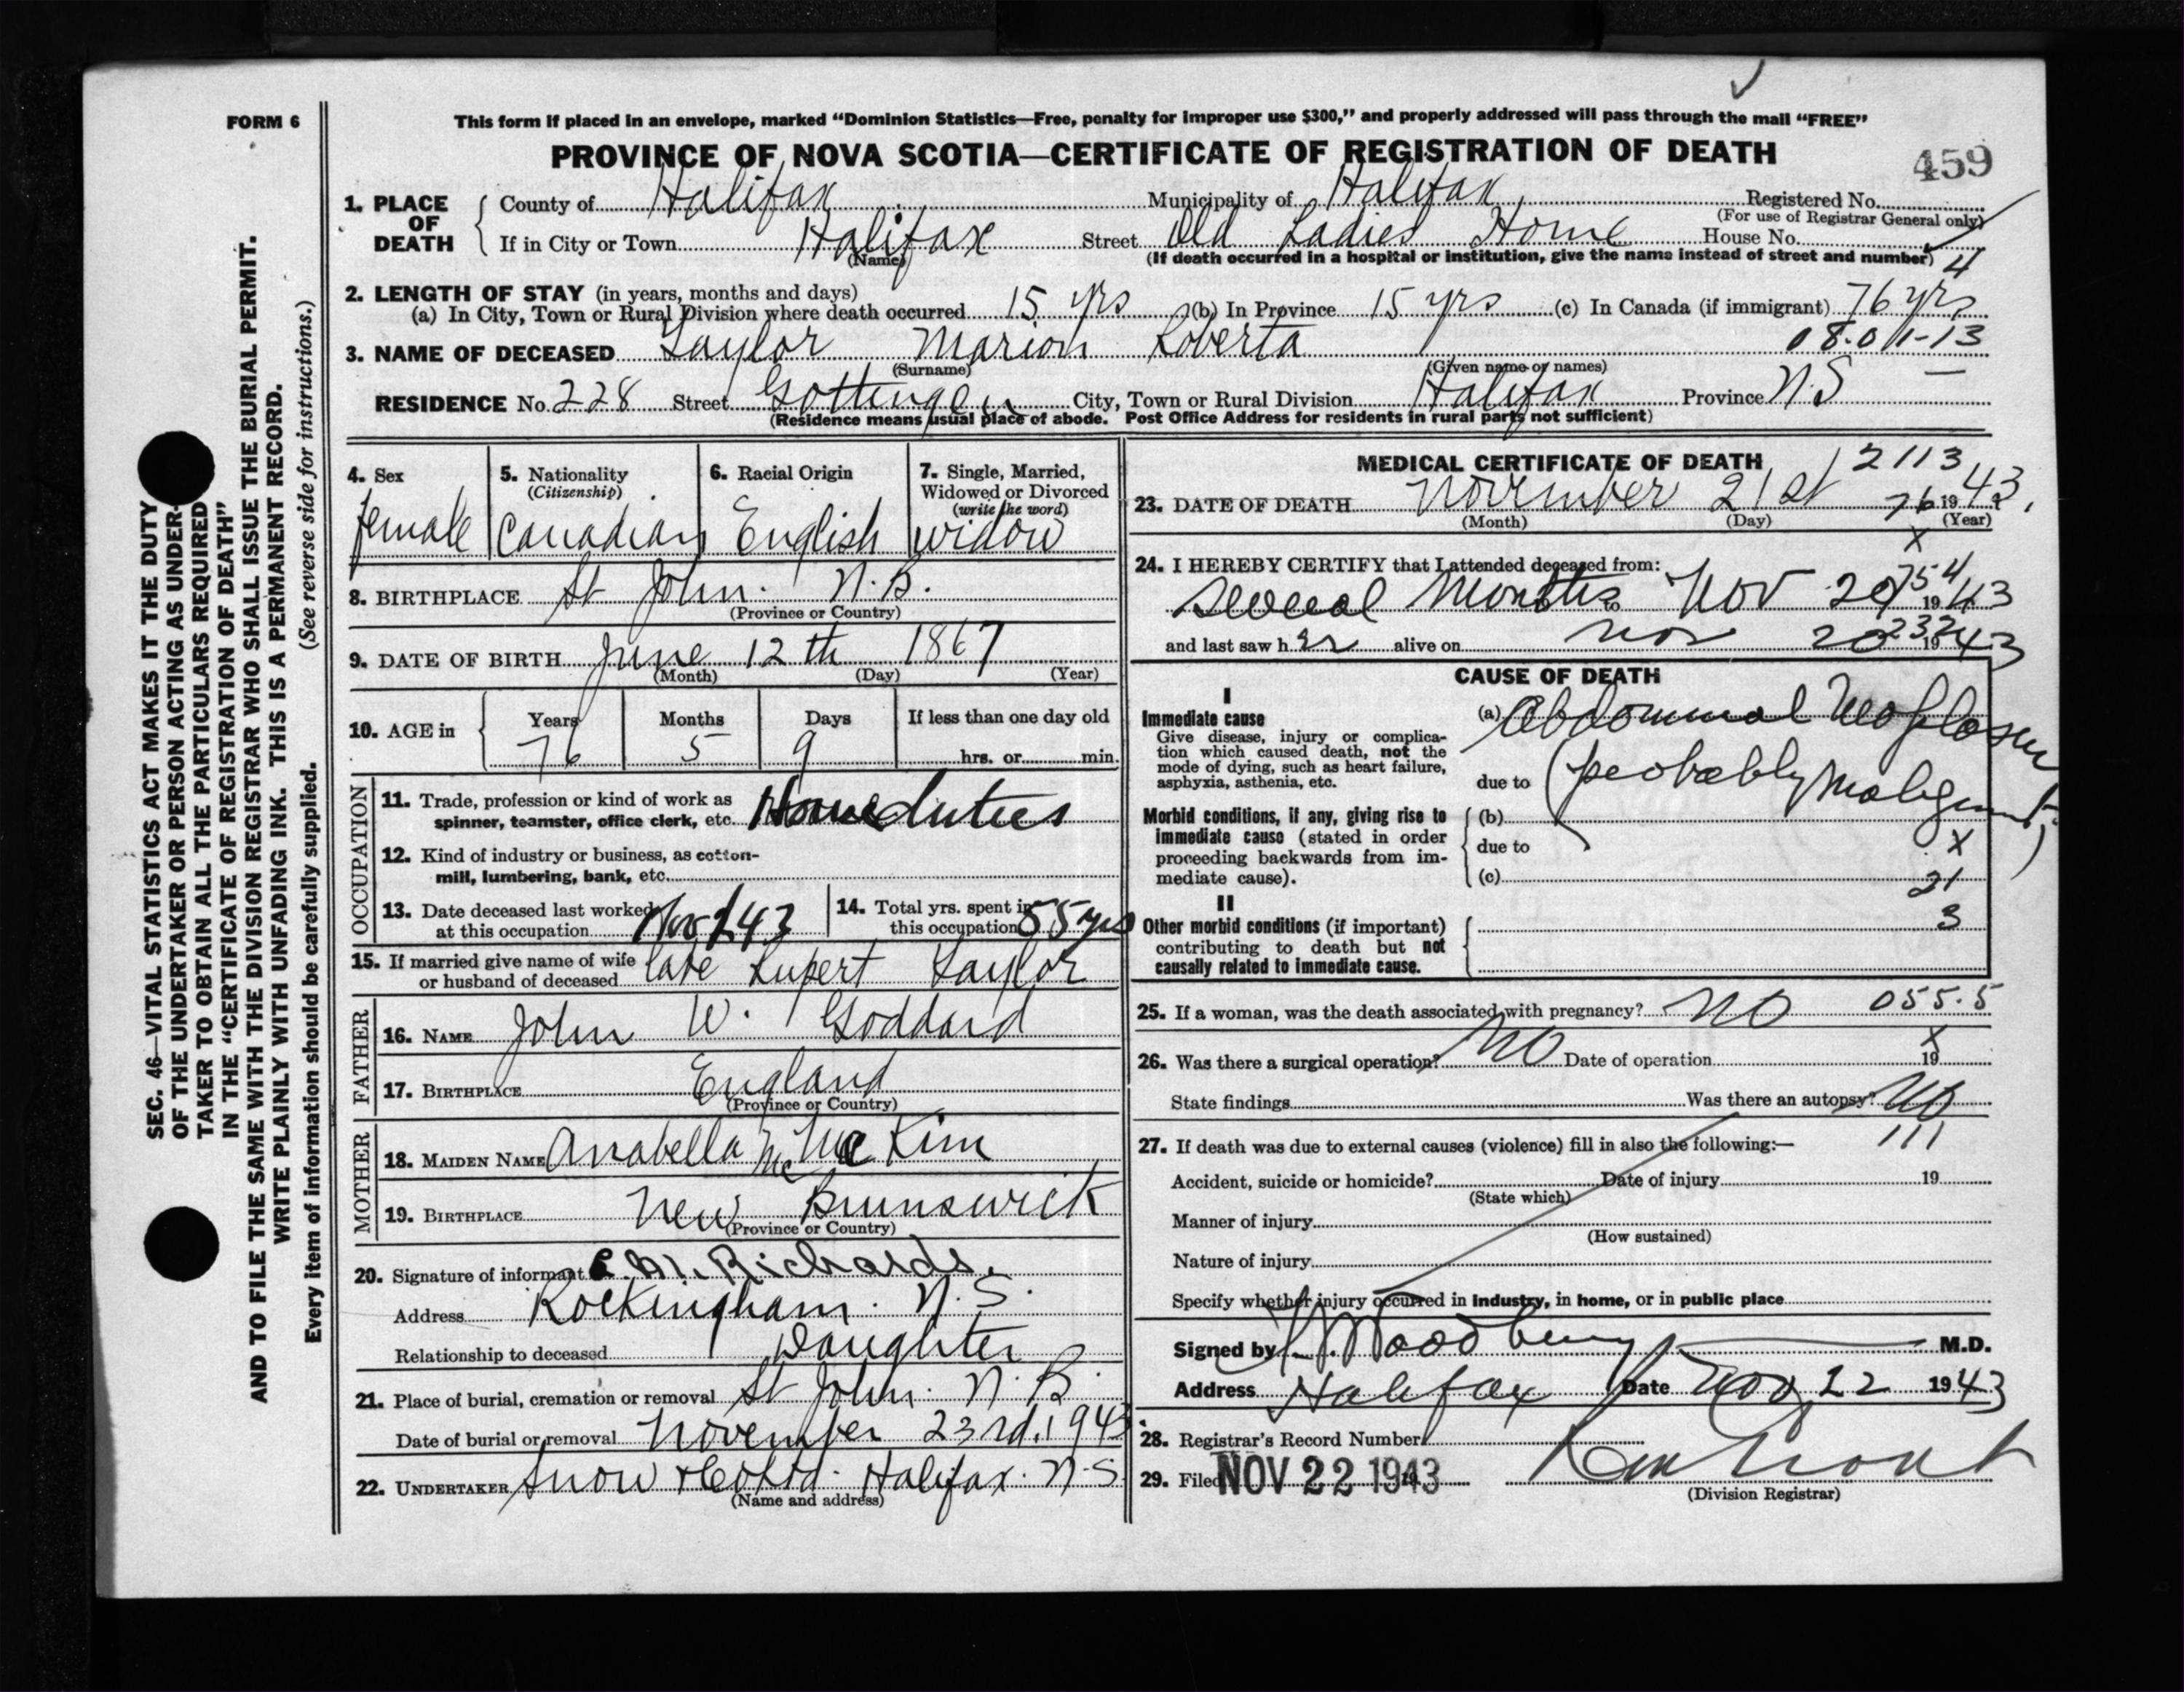 FORM 6
This form if placed in an envelope, marked “Dominion Statistics—Free, penalty for improper use $300,” and properly addressed will pass through the mail “FREE”
PROVINCE OF NOVA SCOTIA—CERTIFICATE OF REGISTRATION OF DEATH
459
1. PLACE OF DEATH
County of Halifax Municipality of Halifax Registered No.
(For use of Registrar General only)
If in City or Town Halifax Street Old Ladies Home House No.
(Name) (If death occurred in a hospital or institution, give the name instead of street and number)
4
2. LENGTH OF STAY (in years, months and days)
(a) In City, Town or Rural Division where death occurred 15 yrs (b) In Province 15 yrs (c) In Canada (if immigrant) 76 yrs
3. NAME OF DECEASED Taylor Marion Roberta 08.011-13
(Surname) (Given name or names)
RESIDENCE No. 228 Street Gottingen City, Town or Rural Division Halifax Province N.S
(Residence means usual place of abode. Post Office Address for residents in rural parts not sufficient)
4. Sex
female
5. Nationality
(Citizenship)
Canadian
6. Racial Origin
English
7. Single, Married,
Widowed or Divorced
(write the word)
widow
8. BIRTHPLACE St John. N.B.
(Province or Country)
9. DATE OF BIRTH June 12th 1867
(Month) (Day) (Year)
10. AGE in
Years Months Days If less than one day old
76 5 9 hrs. or min.
OCCUPATION
11. Trade, profession or kind of work as
spinner, teamster, office clerk, etc. Home duties
12. Kind of industry or business, as cotton-
mill, lumbering, bank, etc.
13. Date deceased last worked
at this occupation Nov 1 43
14. Total yrs. spent in
this occupation 55 yrs
15. If married give name of wife
or husband of deceased late Rupert Taylor
FATHER
16. NAME John W. Goddard
17. BIRTHPLACE England
(Province or Country)
MOTHER
18. MAIDEN NAME Anabella Mc Kim
19. BIRTHPLACE New Brunswick
(Province or Country)
20. Signature of informant E. M. Richards.
Address Rockingham. N.S.
Relationship to deceased Daughter
21. Place of burial, cremation or removal St John. N.B.
Date of burial or removal November 23rd. 1943
22. UNDERTAKER Snow & Co Ltd. Halifax. N.S.
(Name and address)
MEDICAL CERTIFICATE OF DEATH
2113
23. DATE OF DEATH November 21st 1943
(Month) (Day) (Year)
76
X
24. I HEREBY CERTIFY that I attended deceased from:
Several Months to Nov 20 1943
754
and last saw her alive on Nov 20 1943
232
CAUSE OF DEATH
I
Immediate cause
Give disease, injury or complica-
tion which caused death, not the
mode of dying, such as heart failure,
asphyxia, asthenia, etc.
(a) Abdominal Neoplasm
due to (probably Malignant)
Morbid conditions, if any, giving rise to
immediate cause (stated in order
proceeding backwards from im-
mediate cause).
(b)
due to
X
(c)
21
II
Other morbid conditions (if important)
contributing to death but not
causally related to immediate cause.
3
25. If a woman, was the death associated with pregnancy? NO 055.5
26. Was there a surgical operation? NO Date of operation 19
X
State findings Was there an autopsy? No
27. If death was due to external causes (violence) fill in also the following:—
111
Accident, suicide or homicide? Date of injury 19
(State which)
Manner of injury
(How sustained)
Nature of injury
Specify whether injury occurred in industry, in home, or in public place
Signed by Woodbury M.D.
Address Halifax Date Nov 22 1943
28. Registrar's Record Number
29. Filed NOV 22 1943
(Division Registrar)
SEC. 46—VITAL STATISTICS ACT MAKES IT THE DUTY
OF THE UNDERTAKER OR PERSON ACTING AS UNDER-
TAKER TO OBTAIN ALL THE PARTICULARS REQUIRED
IN THE “CERTIFICATE OF REGISTRATION OF DEATH”
AND TO FILE THE SAME WITH THE DIVISION REGISTRAR WHO SHALL ISSUE THE BURIAL PERMIT.
WRITE PLAINLY WITH UNFADING INK. THIS IS A PERMANENT RECORD.
Every item of information should be carefully supplied. (See reverse side for instructions.)